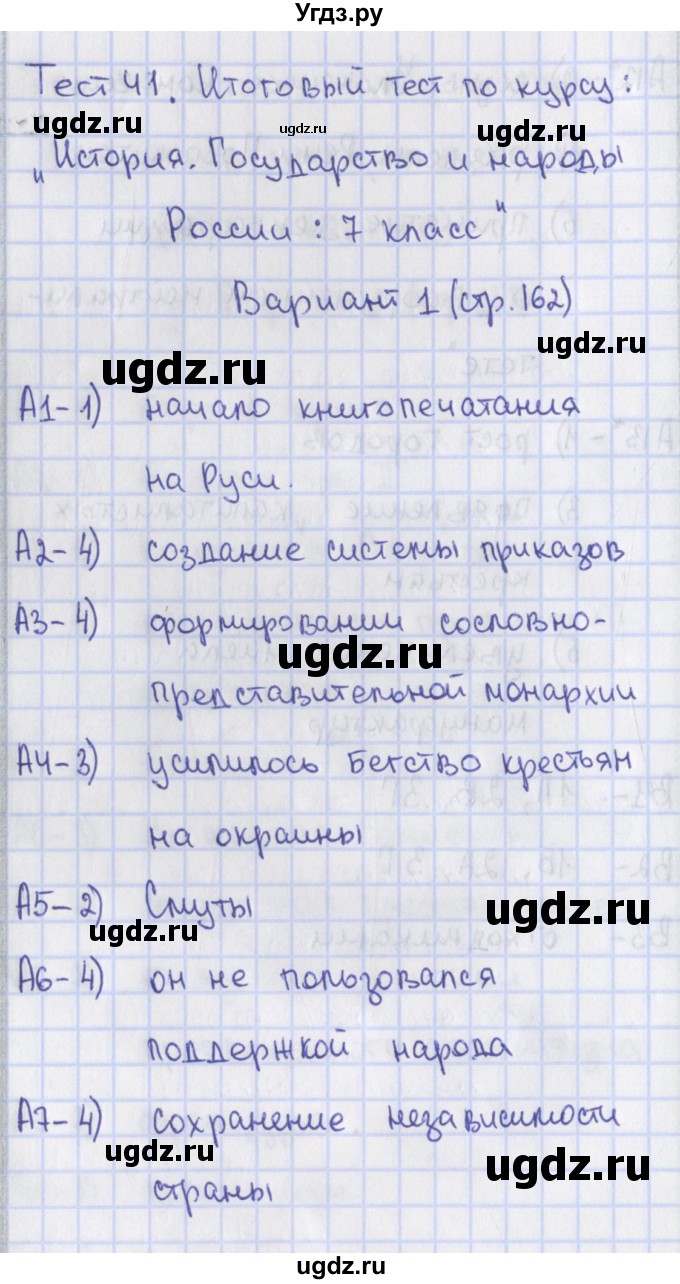 Угдз.ру
Тест 41. Итоговый тест по курсу:
ugdz.ru ugdz.ru
„История. Государство и народы
России: 7 класс"
ugdz.ru
Вариант 1 (стр. 162)
ugdz.ru
ugdz.ru
А1-1) начало книгопечатания
на Руси.
ugdz.ru
ugdz.ru
А2-4) создание системы приказов
А3-4) формировании сословно-
ugdz.ru
представительной монархии
А4-3) усилилось бегство крестьян
на окраины
А5-2) Смуты
ugdz.ru
ugdz.ru
А6-4) он не пользовался
поддержкой народа
А7-4) сохранение независимости
ugdz.ru
ugdz.ru
страны
ugdz.ru